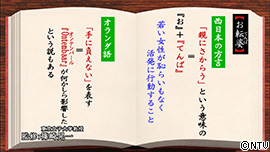 【お転婆】
西日本の方言
「親にさからう」という意味の
=
『お』+『てんば』
若い女性が恥らいもなく
活発に行動すること
オランダ語
「手に負えない」を表す
=
オンテンバール
『Ontenbaar』が何かしら影響した
という説もある
東京女子大学教授
監修:篠崎晃一
©NTU